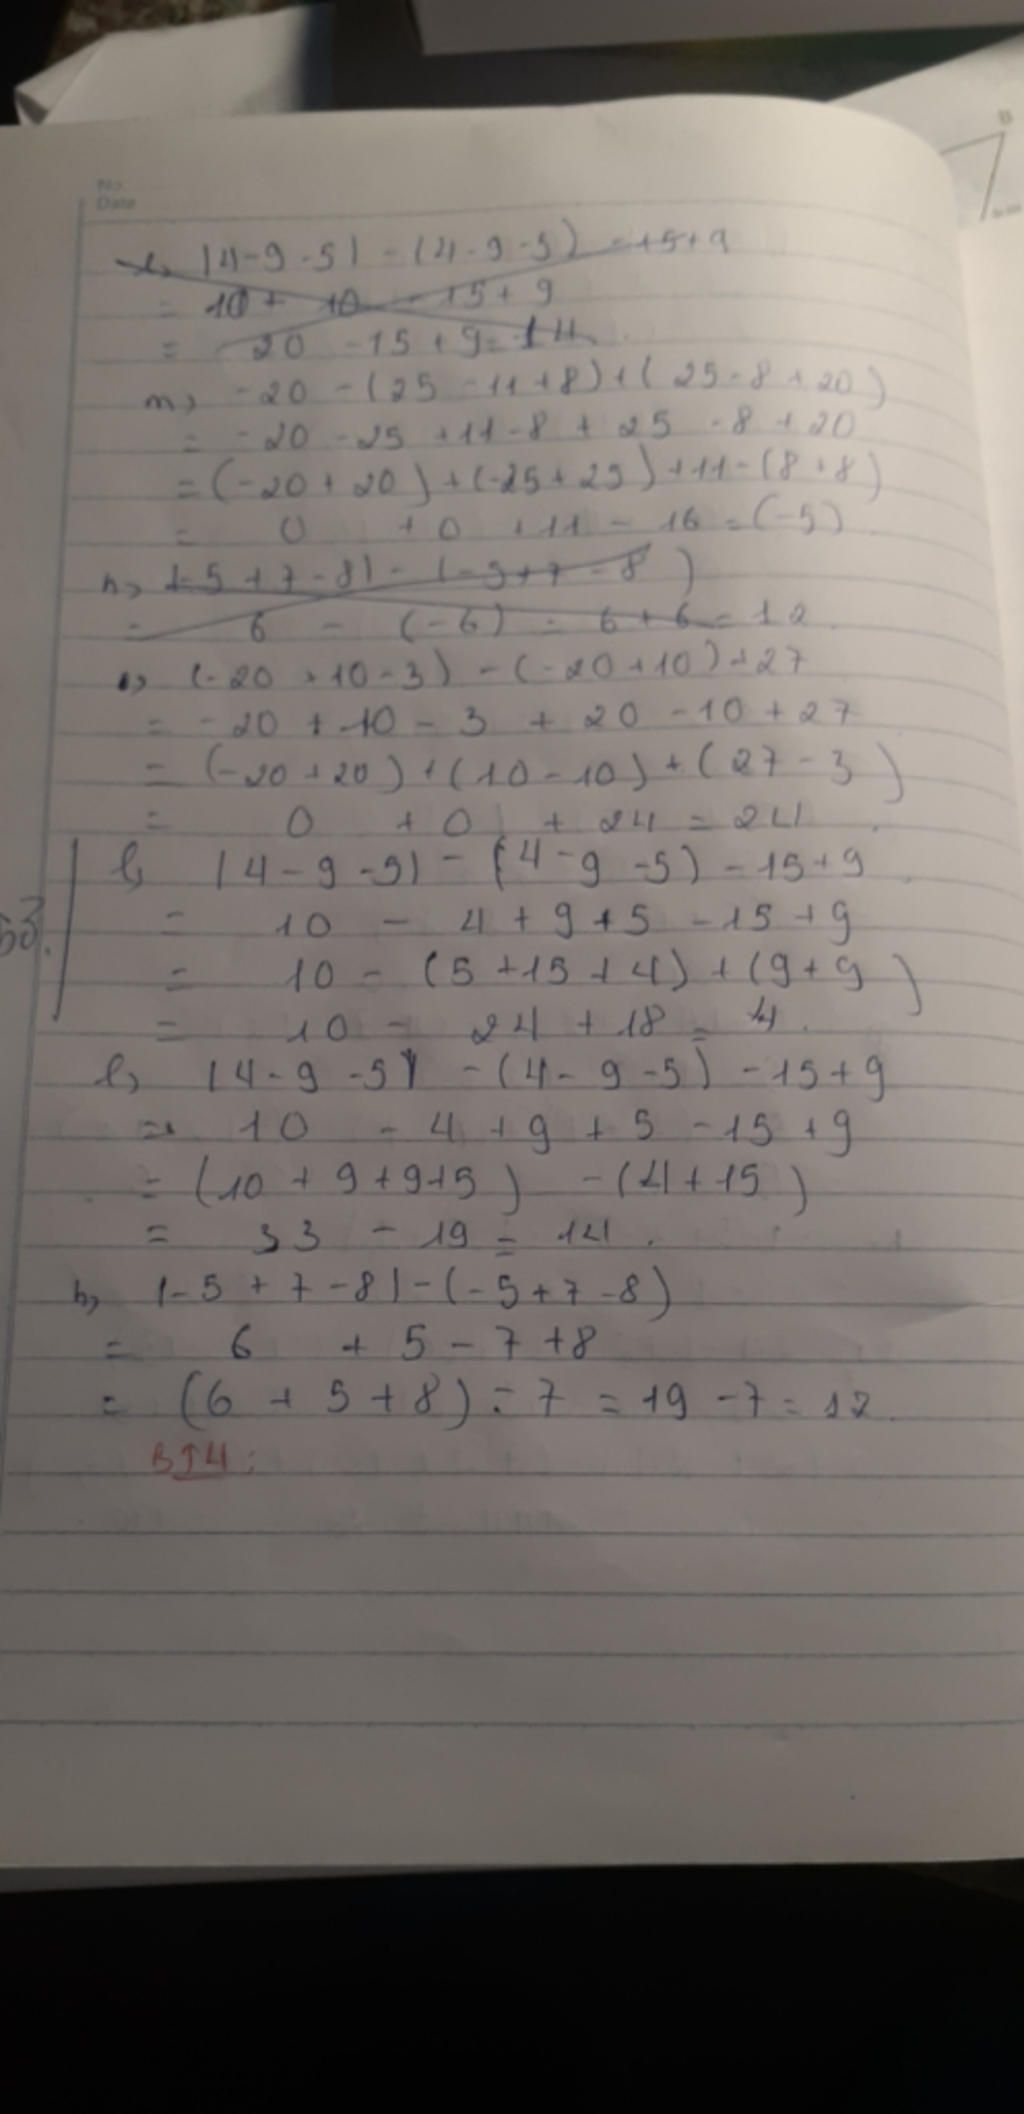 No
Date
l, |4-9-5| - (4-9-5) - 15+9
= 10 + 10 - 15 + 9
= 20 - 15 + 9 = 14
m, -20 - (25 - 11 + 8) + (25 - 8 + 20)
= -20 - 25 + 11 - 8 + 25 - 8 + 20
= (-20 + 20) + (-25 + 25) + 11 - (8 + 8)
= 0 + 0 + 11 - 16 = (-5)
n, |-5 + 7 - 8| - (-5 + 7 - 8)
= 6 - (-6) = 6 + 6 = 12
(-20 + 10 - 3) - (-20 + 10) + 27
= -20 + 10 - 3 + 20 - 10 + 27
= (-20 + 20) + (10 - 10) + (27 - 3)
= 0 + 0 + 24 = 24
l, |4 - 9 - 5| - (4 - 9 - 5) - 15 + 9
= 10 - 4 + 9 + 5 - 15 + 9
= 10 - (5 + 15 + 4) + (9 + 9)
= 10 - 24 + 18 = 4.
l, |4 - 9 - 5| - (4 - 9 - 5) - 15 + 9
= 10 - 4 + 9 + 5 - 15 + 9
= (10 + 9 + 9 + 5) - (4 + 15)
= 33 - 19 = 14.
n, |-5 + 7 - 8| - (-5 + 7 - 8)
= 6 + 5 - 7 + 8
= (6 + 5 + 8) - 7 = 19 - 7 = 12.
BT4:
B